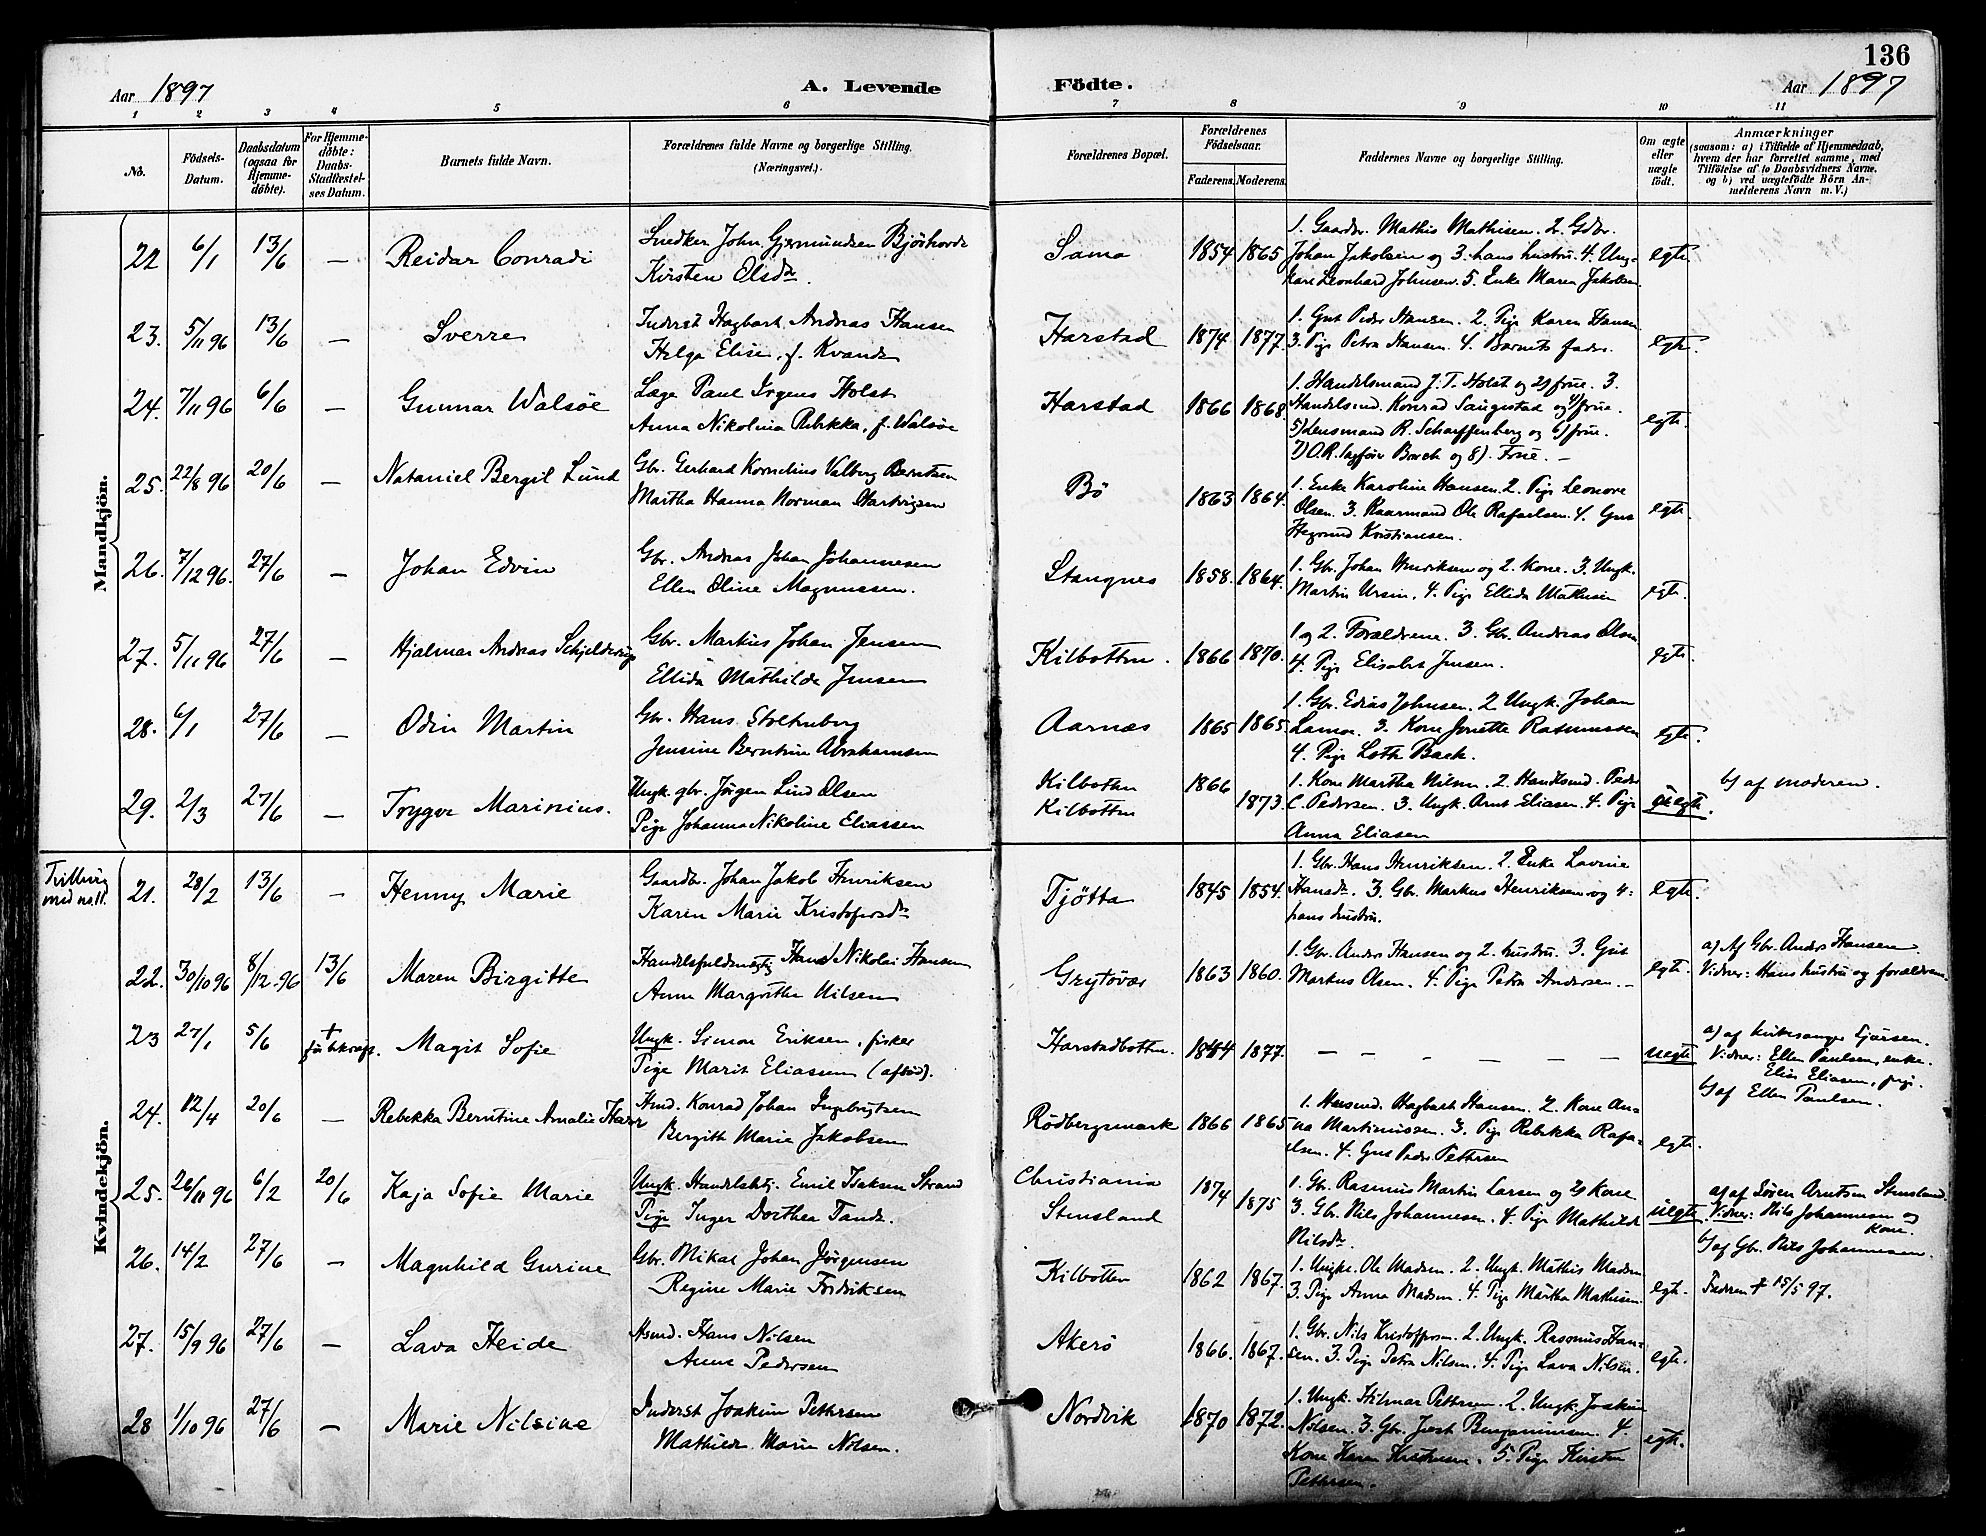 136
Aar 1897
A. Levende
Födte.
Aar 1897
1 2 3 4 5 6 7 8 9 10 11
No.
Födsels-Datum.
Daabsdatum (ogsaa for Hjemmedöbte).
For Hjemmedöbte: Daabs-Stadfæstelses Datum.
Barnets fulde Navn.
Forældrenes fulde Navne og borgerlige Stilling. (Næringsvei.)
Forældrenes Bopæl.
Forældrenes Födselsaar.
Faderens. Moderens.
Faddernes Navne og borgerlige Stilling.
Om ægte eller uægte födt.
Anmærkninger
(saasom: a) i Tilfælde af Hjemmedaab, hvem der har forrettet samme, med Tilföielse af to Daabsvidners Navne. og b) ved uægtefödte Börn Anmelderens Navn m. V.)
Mandkjön.
22 6/1 13/6 — Reidar Conradi
Snedker John Gjermundsen
Kirsten Olsdr.
Sama 1854 1865
1. Gaardbr. Mathis Mathisen. 2. Gdbr.
Johan Jakobsen og 3. hans hustru. 4. Ung.
Kare Leonhard Johnsen. 5. Enke Maren Jakobsen
egte.
23. 5/11 96 13/6 — Sverre
Inderst Hagbart Andreas Hansen
Helga Elise, f. Kvande
Harstad 1874 1877.
1. Gut Peder Hansen. 2. Pige Karen Hansen
3. Pige Petra Hansen. 4. Barnets fader.
egte.
24. 7/11 96 6/6 — Gunnar Walsöe
Læge Paul Irgens Holst
Anna Nikolina Rebekka, f. Walsöe
Harstad 1866 1868.
1. Handelsmand J. T. Holst og 2) frue. 3.
Handelsmd. Konrad Sangestad og 4) frue.
5) Lensmand R. Scharffenberg og 6) frue.
7) O.R. sagförer Barch og 8). Frue. —
egte.
25. 22/8 96 20/6 — Nataniel Bergil Lund
Gbr. Gerhard Kornelius Valberg Berntsen
Martha Hanna Norman Hartvigsen
Bö 1863 1864.
1. Enke Karoline Hansen. 2. Pige Leonore
Olsen. 3. Kaarmand Ole Rafaelsen. 4. Gut
Kristiansen.
egte.
26. 7/12 96. 27/6 — Johan Edvin
Gbr. Andreas Johan Johannesen
Ellen Oline Magnussen.
Stangnes 1858. 1864.
1. Gbr. Johan Henriksen og 2. Kone. 3. Ungk.
Martin Ursin. 4. Pige Ellida Mathisen
egte.
27. 5/11 96 27/6 — Hjalmar Andreas Schjelderup
Gbr. Markus Johan Jensen
Ellida Mathilde Jensen
Kilbotten. 1866 1870.
1 og 2. Forældrene. 3. Gbr. Andreas Olsen
4. Pige Elisabet Jensen.
egte.
28. 6/1 27/6 — Odin Martin
Gbr. Hans Stoltenberg
Jensine Berntine Abrahamsen
Aarnæs 1865 1865.
1. Gbr. Edias Johnsen. 2 Ungk. Johan
3. Kone Jonette Rasmussen
4. Pige Back.
egte.
29. 2/3 27/6 — Trygve Marinius.
Ungk. gbr. Jörgen Lind Olsen
Pige Johanna Nikoline Eliassen
Kilbotten
Kilbotten
1866 1873.
1. Kone Martha Nilsen. 2. Handelsmd. Peder
C. Pedersen. 3. Ungk. Arnt Eliasen. 4. Pige
Anna Eliasen
uegte.
b) af moderen.
Kvindekjön.
Tvilling med no. 11.
21. 28/2 13/6 — Henny Marie
Gaardbr. Johan Jakob Henriksen
Karen Marie Kristofersdr.
Tjötta 1845 1854.
1. Gbr. Hans Henriksen. 2. Enke Lavina
Hansdr. 3. Gbr. Markus Henriksen og 4.
hans hustru.
egte.
22. 30/10 96 8/12. 96 13/6 Maren Birgitte
Handelsfuldmægtig Hans Nikolai Hansen
Anne Margrethe Nilsen
Grytövær 1863 1860.
1. Gbr. Anders Hansen og 2. hustru. 3. Gut
Markus Olsen. 4. Pige Petra Andersen. —
egte.
a) Af Gbr. Anders Hansen
Vidner: Hans hustru og forældrene.
23 27/1 5/6 + Magit Sofie
Ungk. Simon Eriksen, fisker
Pige Marit Eliassen (afdöd).
Harstadbotten. 1844 1877.
— — — — — —
uegte
a) af kirkesanger Tjörsen.
Vidner: Ellen Paulsen, enke.
Elise Eliasen, pige.
b) af Ellen Paulsen.
24. 12/4 20/6 — Rebekka Berntine Amalie
Arnd. Konrad Johan Ingebrigtsen
Bergith Marie Jakobsen
Rödbergsmark 1866 1865
1. Hagbart Hansen. 2. Kone An-
na Martinussen. 3. Pige Rebekka Rafa-
elsen. 4. Gut Peder Pettersen
egte.
25. 26/11 96 6/2 20/6 Kaja Sofie Marie
Ungk. Emil Isaksen Strand
Pige Inger Dorthea Tande.
Christiania
Stensland
1874 1875
1. Gbr. Rasmus Martin Larsen og 2) Kone
3. Gbr. Nils Johannesen. 4. Pige Mathilde
Nilsdr.
uegte
a) af Sören Arntsen Stensland.
Vidner: Nils Johannesen og
Kone.
b) af Gbr. Nils Johannesen.
26. 14/2 27/6 — Magnhild Gurine
Gbr. Mikal Johan Jörgensen
Regine Marie Fredriksen
Kilbotten 1862 1867.
1. Ungk. Ole Madsen. 2. Ungk. Mathis Madsen
3. Pige Anna Madsen. 4. Pige Martha Mathisen.
egte.
Faderen † 15/5 97.
27. 15/9 96 27/6 — Lava Heide
Hans Nilsen
Anne Pedersen
Akerö 1866. 1867.
1. Gbr. Nils Kristoffersen. 2. Ungk. Rasmus Han-
sen. 3. Pige Petra Nilsen. 4. Pige Lava Nilsen.
egte.
28 1/10 96 27/6 — Marie Nilsine
Inderst Joakim Pettersen
Mathilde Marie Nilsen.
Nordvik 1870 1872.
1. Ungk. Hilmar Pettersen. 2. Ungk. Joakim
Nilsen. 3. Gbr. Benjaminsen. 4.
Kone Karen Kristensen. 5. Pige Kirsten
Pettersen.
egte.